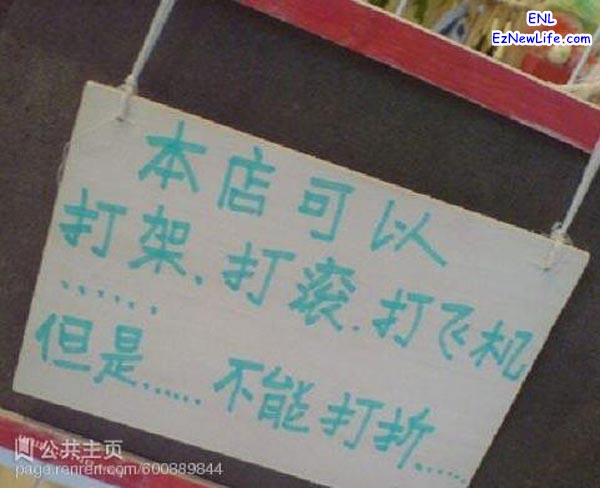 ENL
EzNewLife.com
本店可以
打架、打滚、打飞机
......
但是......不能打折......
公共主页
page.renren.com/600889844